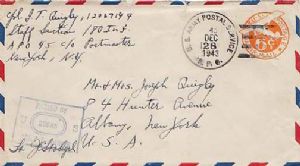 Cpl. J. T. Quigley, 12027194
Staff Section 180 Inf.
APO 45 C/o Postmaster
New York, N.Y.
U.S. ARMY POSTAL SERVICE
DEC
28
1943
A.P.O.
6¢
Mr & Mrs. Joseph Quigley
84 Hunter Avenue
Albany, New York
U. S. A.